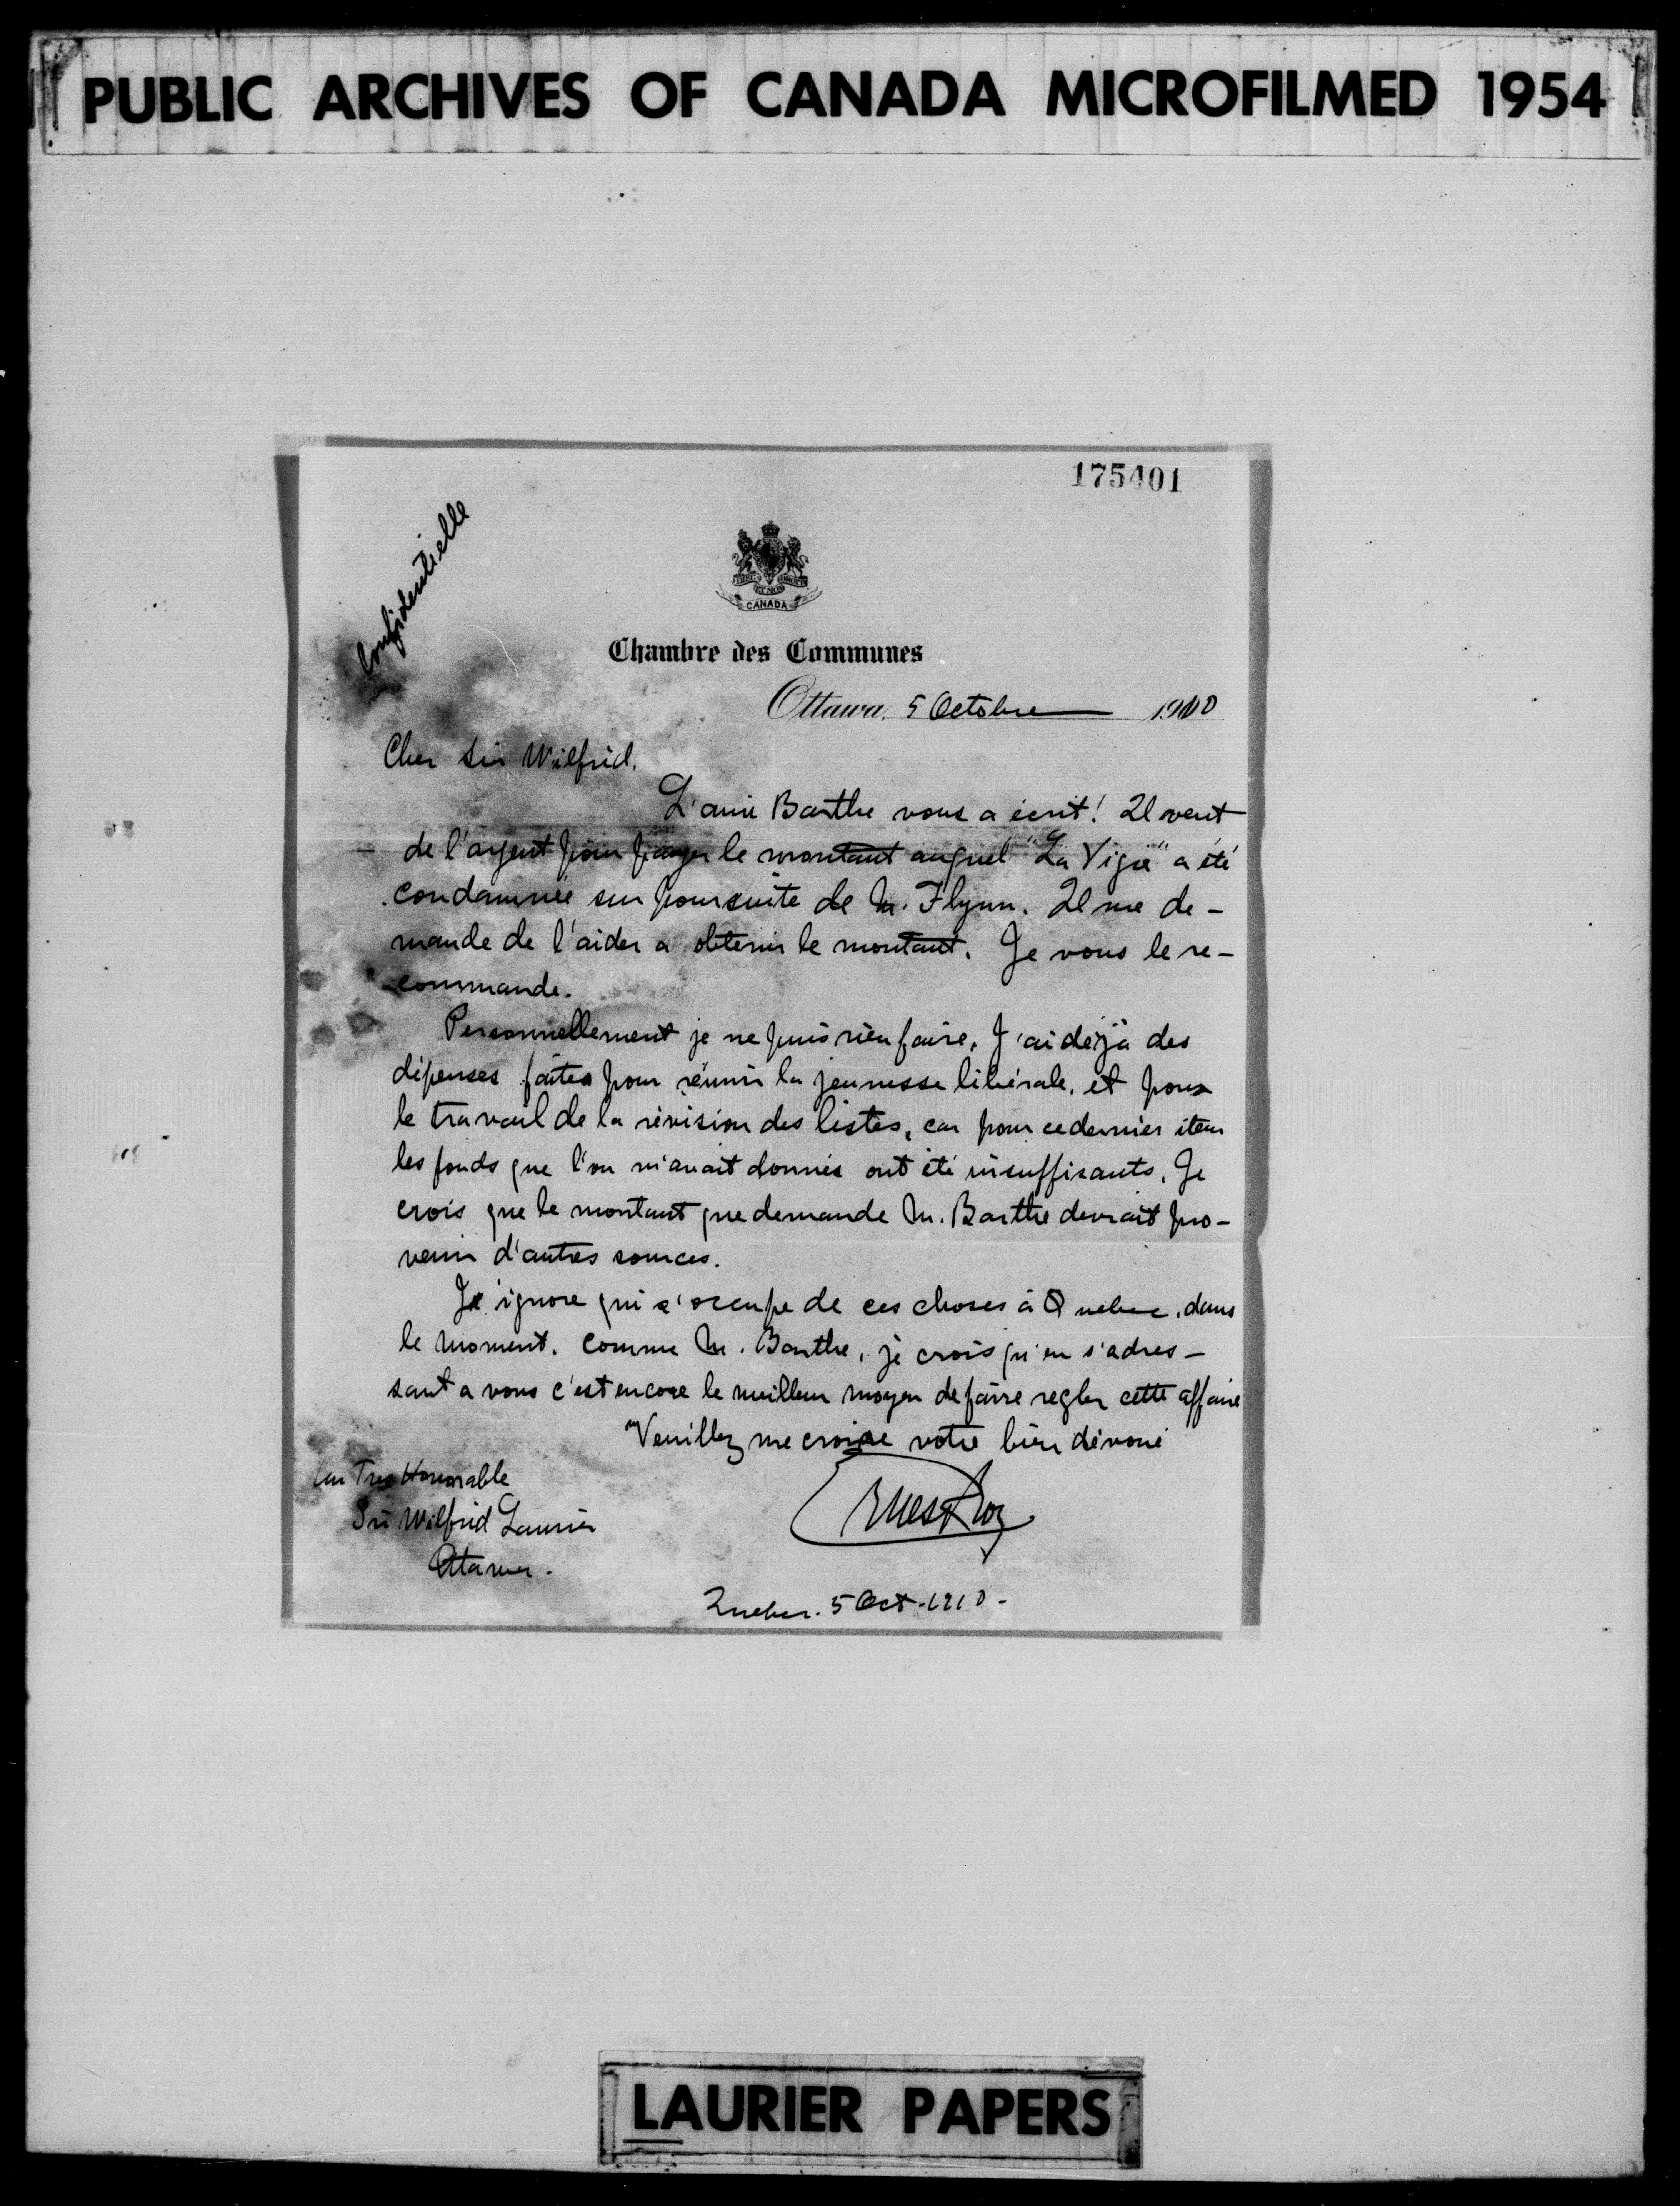 PUBLIC ARCHIVES OF CANADA MICROFILMED 1954
175401
Confidentielle
CANADA
Chambre des Communes
Ottawa, 5 Octobre 1910
Cher Sir Wilfrid.
L'ami Barthe vous a écrit! Il veut
de l'argent pour payer le montant auquel "La Vigie" a été
condamnée sur poursuite de M. Flynn. Il me de-
mande de l'aider a obtenir le montant. Je vous le re-
commande.
Personnellement je ne puis rien faire, J'ai déjà des
dépenses faites pour réunir la jeunesse libérale, et pour
le travail de la révision des listes, car pour ce dernier item
les fonds que l'on m'avait donnés ont été insuffisants. Je
crois que le montant que demande M. Barthe devrait pro-
venir d'autres sources.
J'ignore qui s'occupe de ces choses à Quebec, dans
le moment. Comme M. Barthe, je crois qu'en s'adres-
sant a vous c'est encore le meilleur moyen de faire regler cette affaire
Veuillez me croire votre bien dévoué
Ernest Roy
Au Tres Honorable
Sir Wilfrid Laurier
Ottawa.
Quebec. 5 Oct. 1910-
LAURIER PAPERS